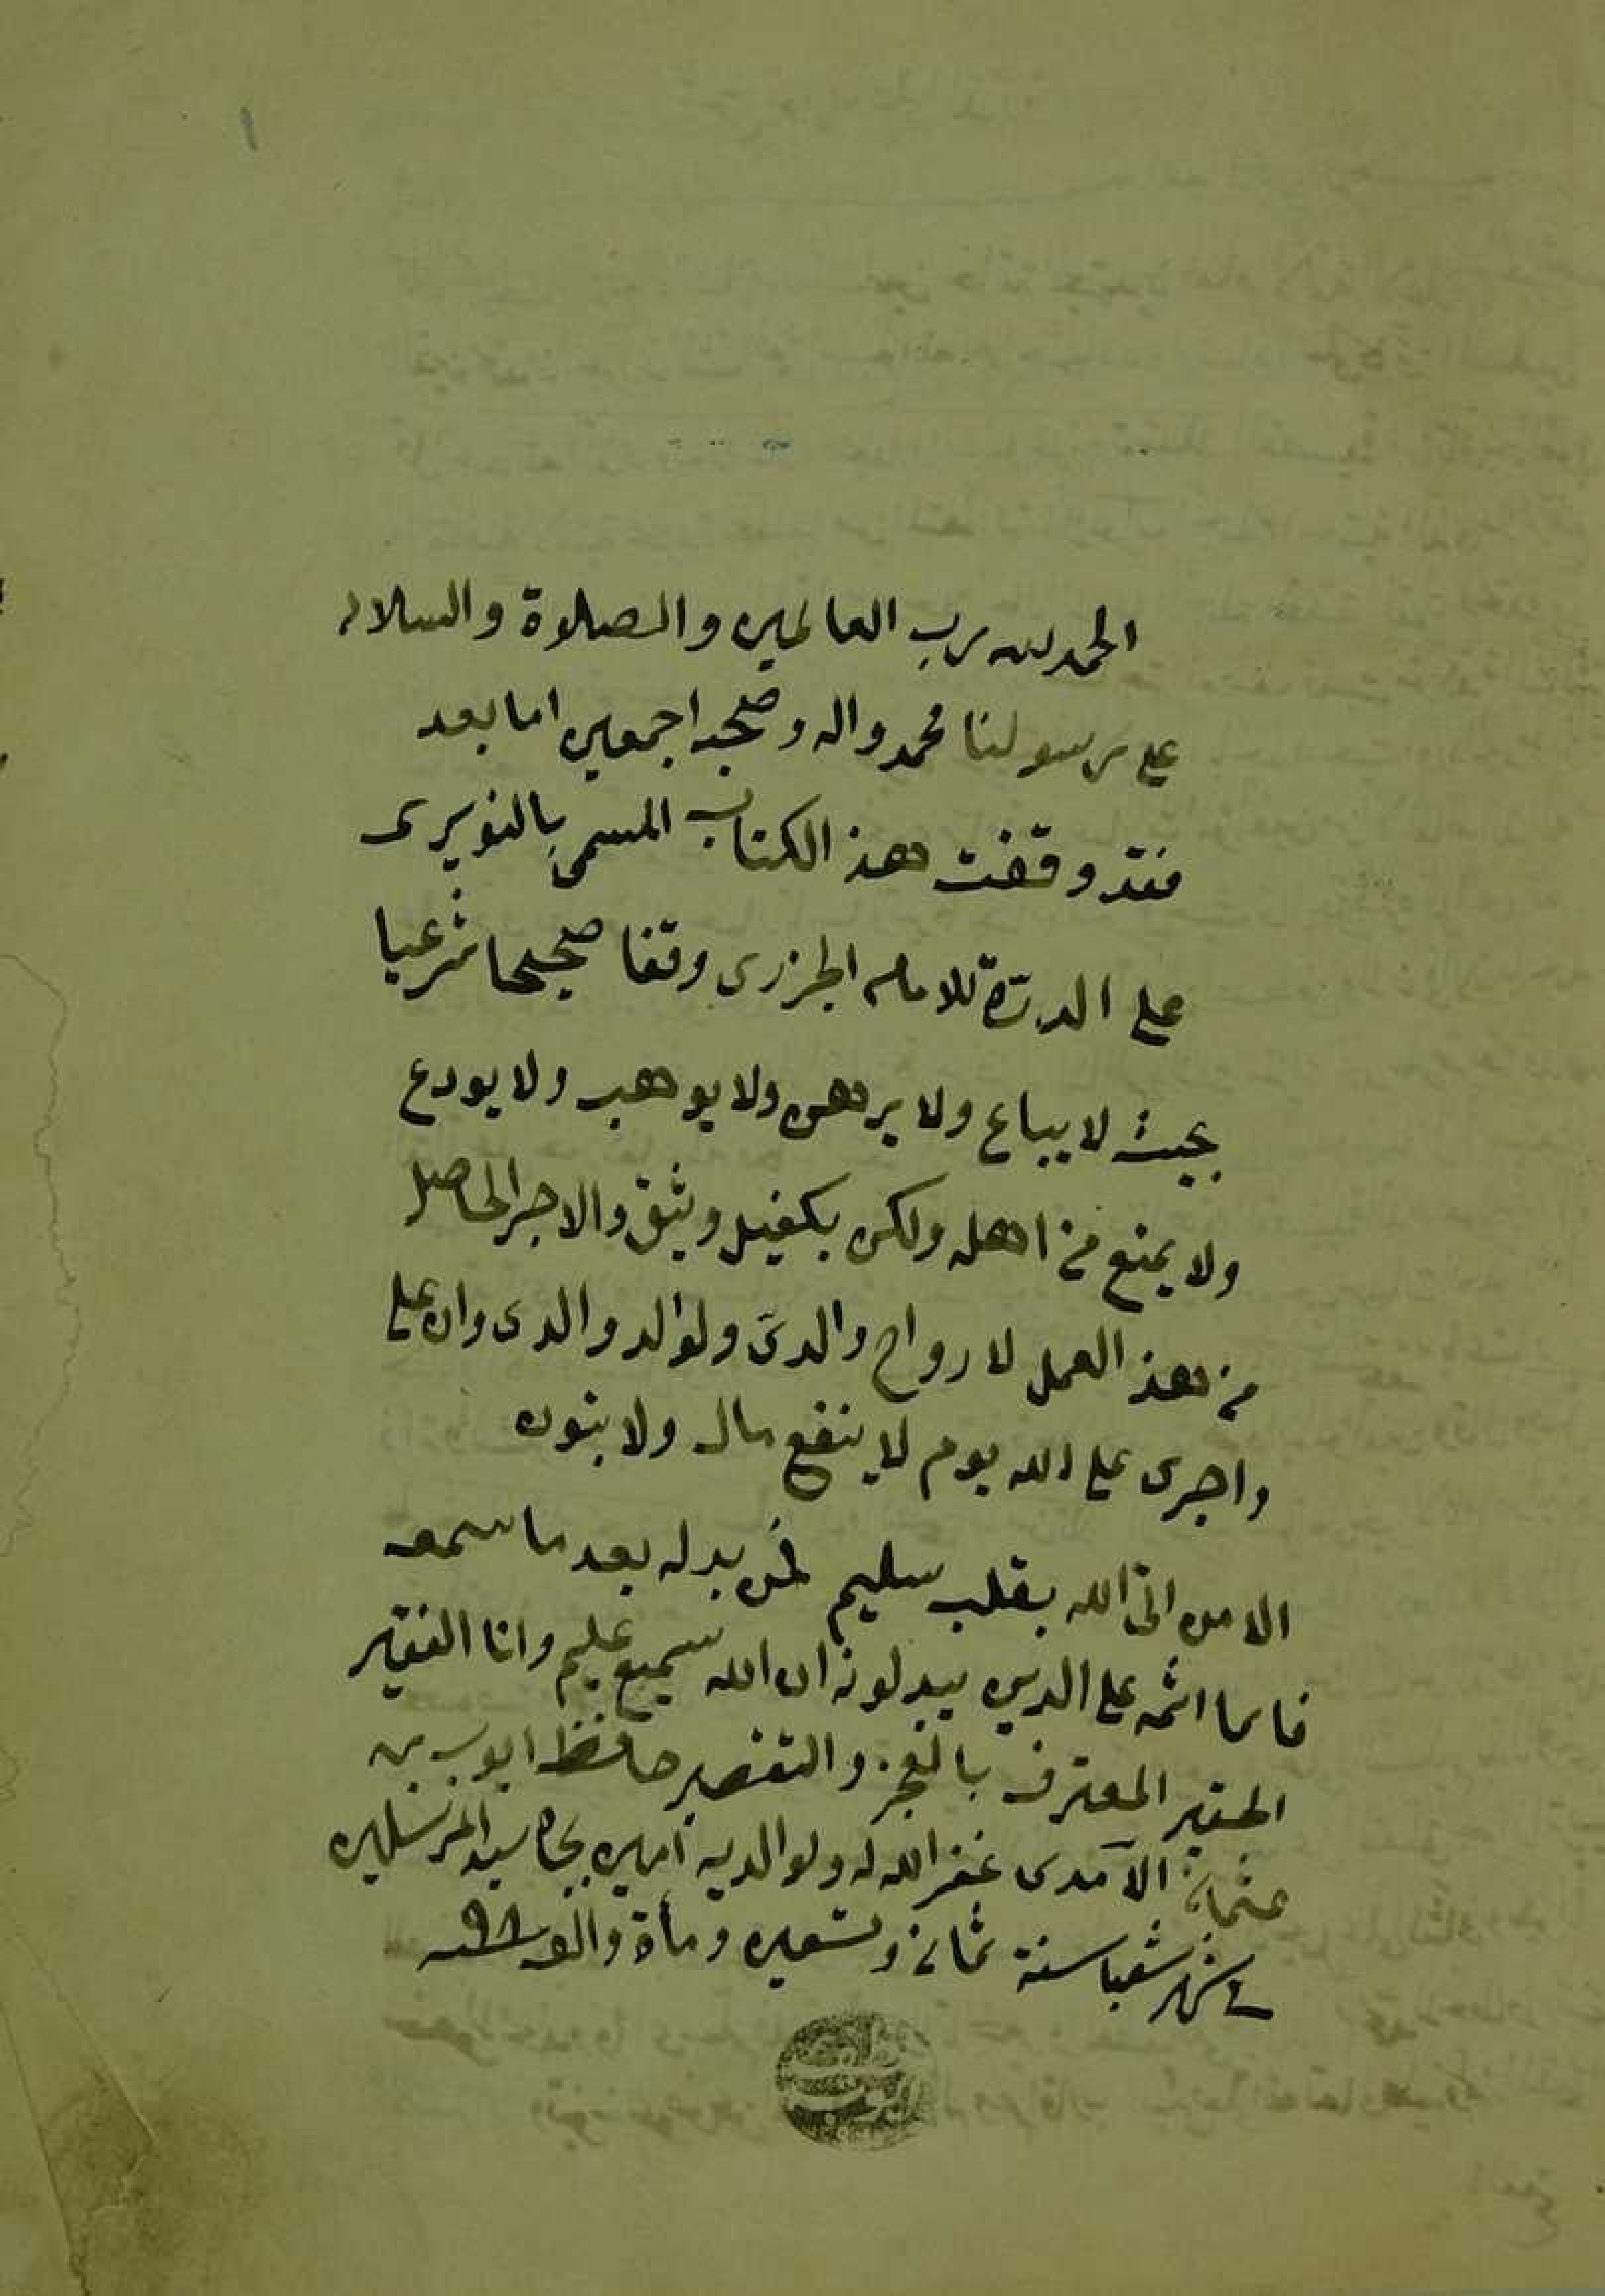 الحمد لله رب العالمين والصلوة والسلام
على رسولنا محمد واله وصحبه اجمعين اما بعد
فقد وقفت هذ الكتاب المسمى بالنويرى
على الدرّة للامام الجزرى وقفا صحيحا شرعيا
بحيث لا يباع ولا يرهن ولا يوهب ولا يودع
ولا يمنع من اهله ولكن بكفيل وثيق والاجر الحاصل
من هذ العمل لارواح والدىّ ولوالد والدى وان على
واجرى على الله يوم لا ينفع مال ولا بنون
الا من اتى الله بقلب سليم فمن بدله بعد ما سمعه
فانما اثمه على الذين يبدلونه ان الله سميع عليم وانا الفقير
الحقير المعترف بالعجز والتقصير حافظ ايوب بن
عثمان الآمدى غفر الله له ولوالديه آمين بجاه سيد المرسلين
شهر شعبا سنة ثمان وتسعين ومأة والف